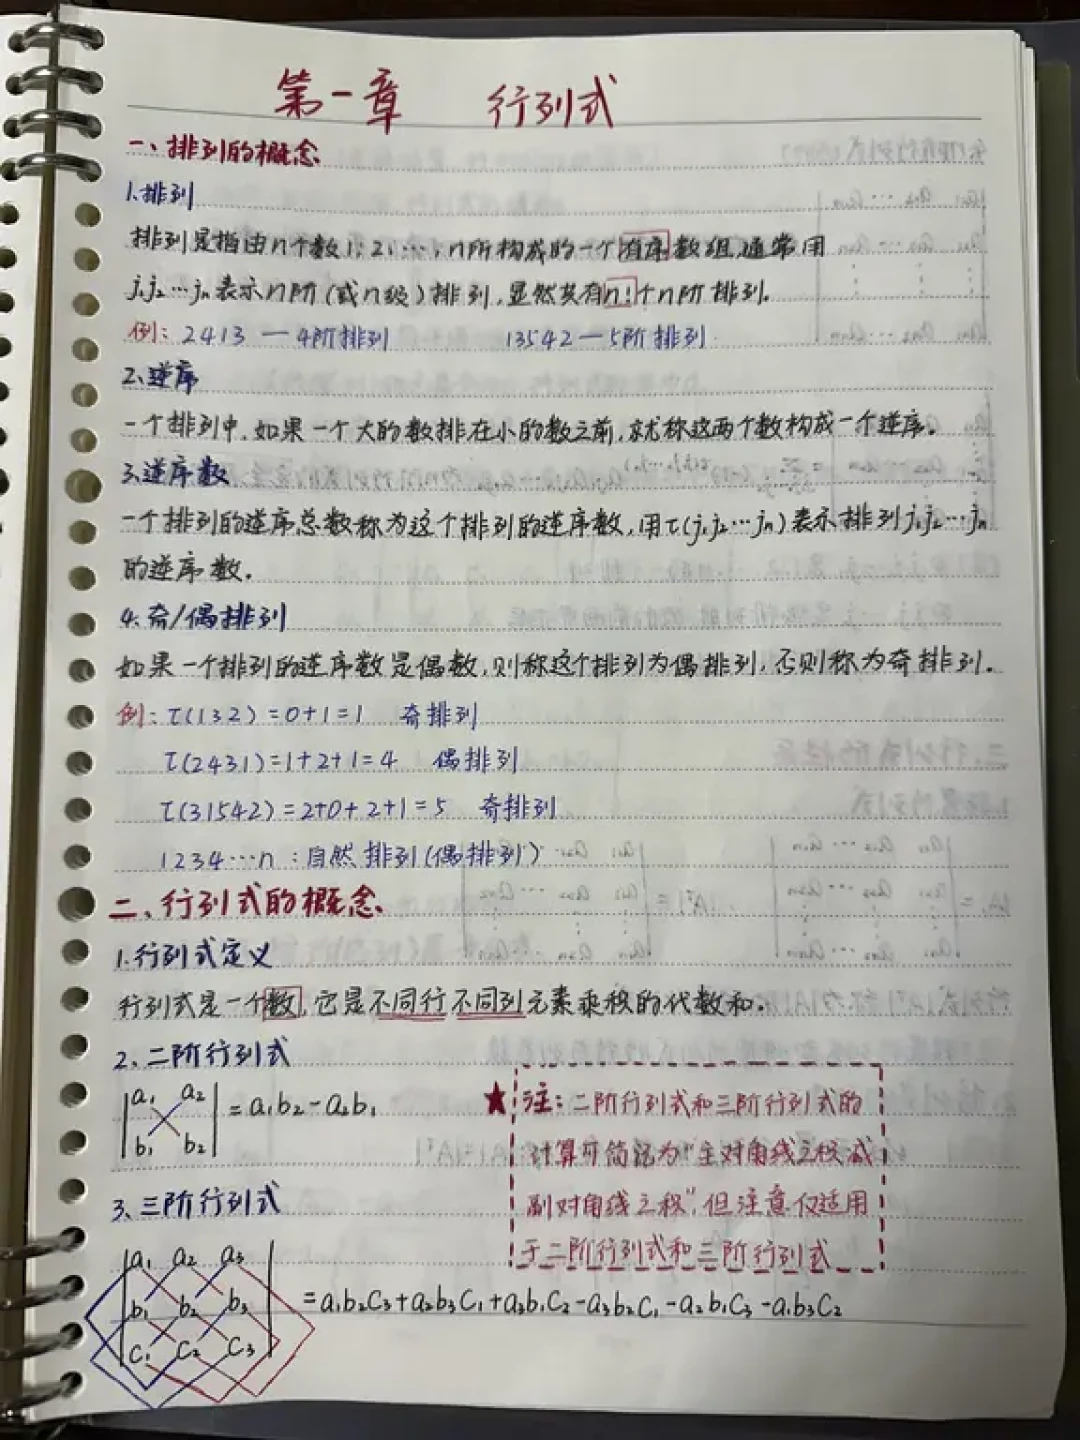 第一章 行列式
一、排列的概念
1.排列
排列是指由n个数1,2,…,n所构成的一个有序数组,通常用
j₁j₂…jₙ表示n阶(或n级)排列,显然共有n!个n阶排列.
例:2413 — 4阶排列 13542 — 5阶排列
2.逆序
一个排列中,如果一个大的数排在小的数之前,就称这两个数构成一个逆序.
3.逆序数
一个排列的逆序总数称为这个排列的逆序数,用τ(j₁j₂…jₙ)表示排列j₁j₂…jₙ
的逆序数.
4.奇/偶排列
如果一个排列的逆序数是偶数,则称这个排列为偶排列,否则称为奇排列.
例:τ(132)=0+1=1 奇排列
τ(2431)=1+2+1=4 偶排列
τ(31542)=2+0+2+1=5 奇排列
1234…n:自然排列(偶排列)
二、行列式的概念
1.行列式定义
行列式是一个数,它是不同行不同列元素乘积的代数和.
2.二阶行列式
|a₁ a₂|
|b₁ b₂| =a₁b₂-a₂b₁
★注:二阶行列式和三阶行列式的
计算可简记为"主对角线之积减
副对角线之积",但注意仅适用
于二阶行列式和三阶行列式
3.三阶行列式
|a₁ a₂ a₃|
|b₁ b₂ b₃| =a₁b₂c₃+a₂b₃c₁+a₃b₁c₂-a₃b₂c₁-a₂b₁c₃-a₁b₃c₂
|c₁ c₂ c₃|